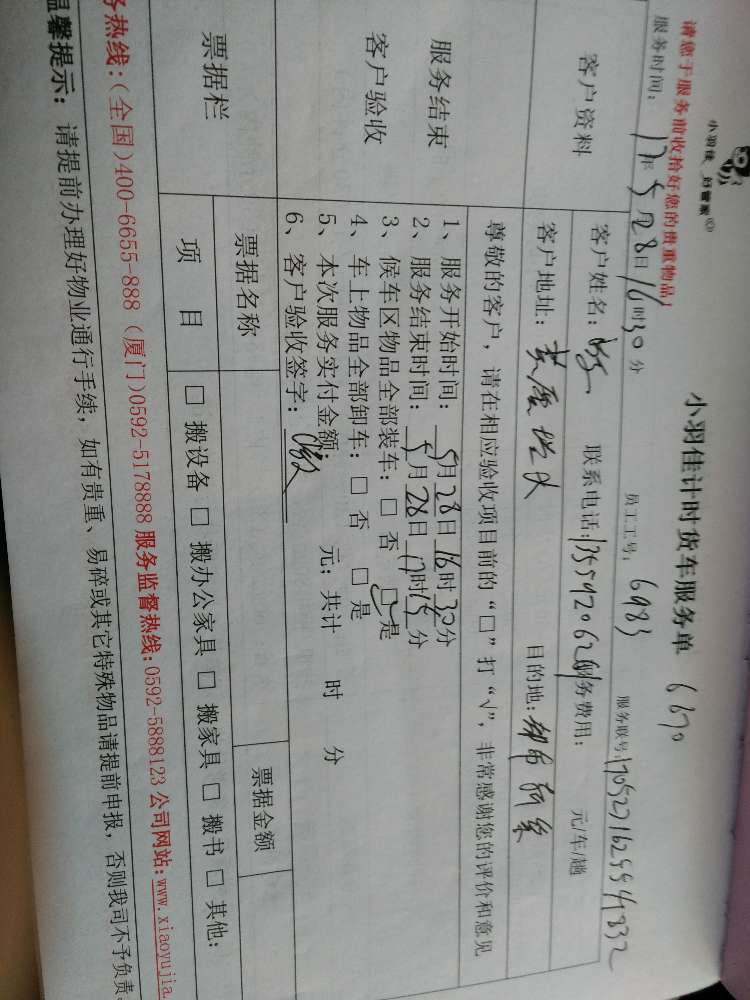 小羽佳 好管家
请您于服务前收拾好您的贵重物品!
小羽佳计时货车服务单 6870
服务时间: 17年5月28日16时30分 员工工号: 6983 服务联号:
客户资料
客户姓名: 联系电话: 服务费用: 元/车/趟
客户地址: 目的地:
尊敬的客户,请在相应验收项目前的“□”打“√”,非常感谢您的评价和意见
服务结束
客户验收
1、服务开始时间: 5月28日16时30分
2、服务结束时间: 5月28日17时15分
3、候车区物品全部装车: □ 否 □ 是
4、车上物品全部卸车: □ 否 □ 是
5、本次服务实付金额: 元; 共计 时 分
6、客户验收签字:
票据栏
票据名称 票据金额
项目 □ 搬设备 □ 搬办公家具 □ 搬家具 □ 搬书 □ 其他:
务热线:(全国)400-6655-888 (厦门)0592-5178888 服务监督热线:0592-5888123 公司网站:www.xiaoyujia.
温馨提示: 请提前办理好物业通行手续,如有贵重、易碎或其它特殊物品请提前申报,否则我司不予负责。